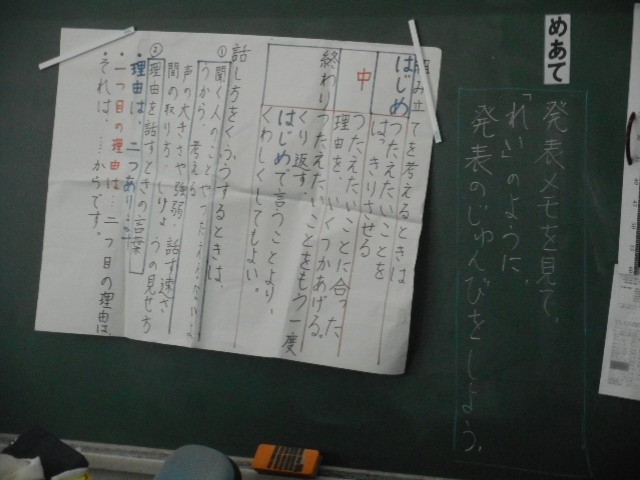 めあて
発表メモを見て、
「れい」のように、
発表のじゅんびをしよう。
組み立てを考えるときは
はじめ
つたえたいことを
はっきりさせる
中
つたえたいことに合った
理由を、いくつかあげる。
終わり
つたえたいことをもう一度
くり返す
はじめで言うことより、
くわしくしてもよい。
話し方をくふうするときは、
①聞く人のことやつたえたいないよ
うから、考える
声の大きさや強弱・話す速さ
間の取り方・しりょうの見せ方
②理由を話すときの言葉
・理由は、二つあります
・一つ目の理由は…二つ目の理由は、
・それは、…からです。